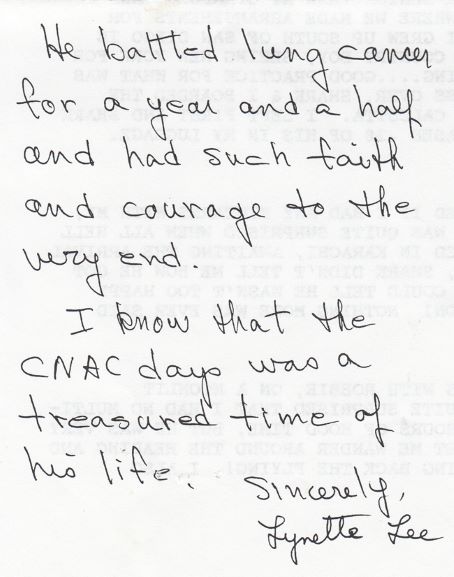 He battled lung cancer
for a year and a half
and had such faith
and courage to the
very end.
I know that the
CNAC days was a
treasured time of
his life.
Sincerely,
Lynette Lee